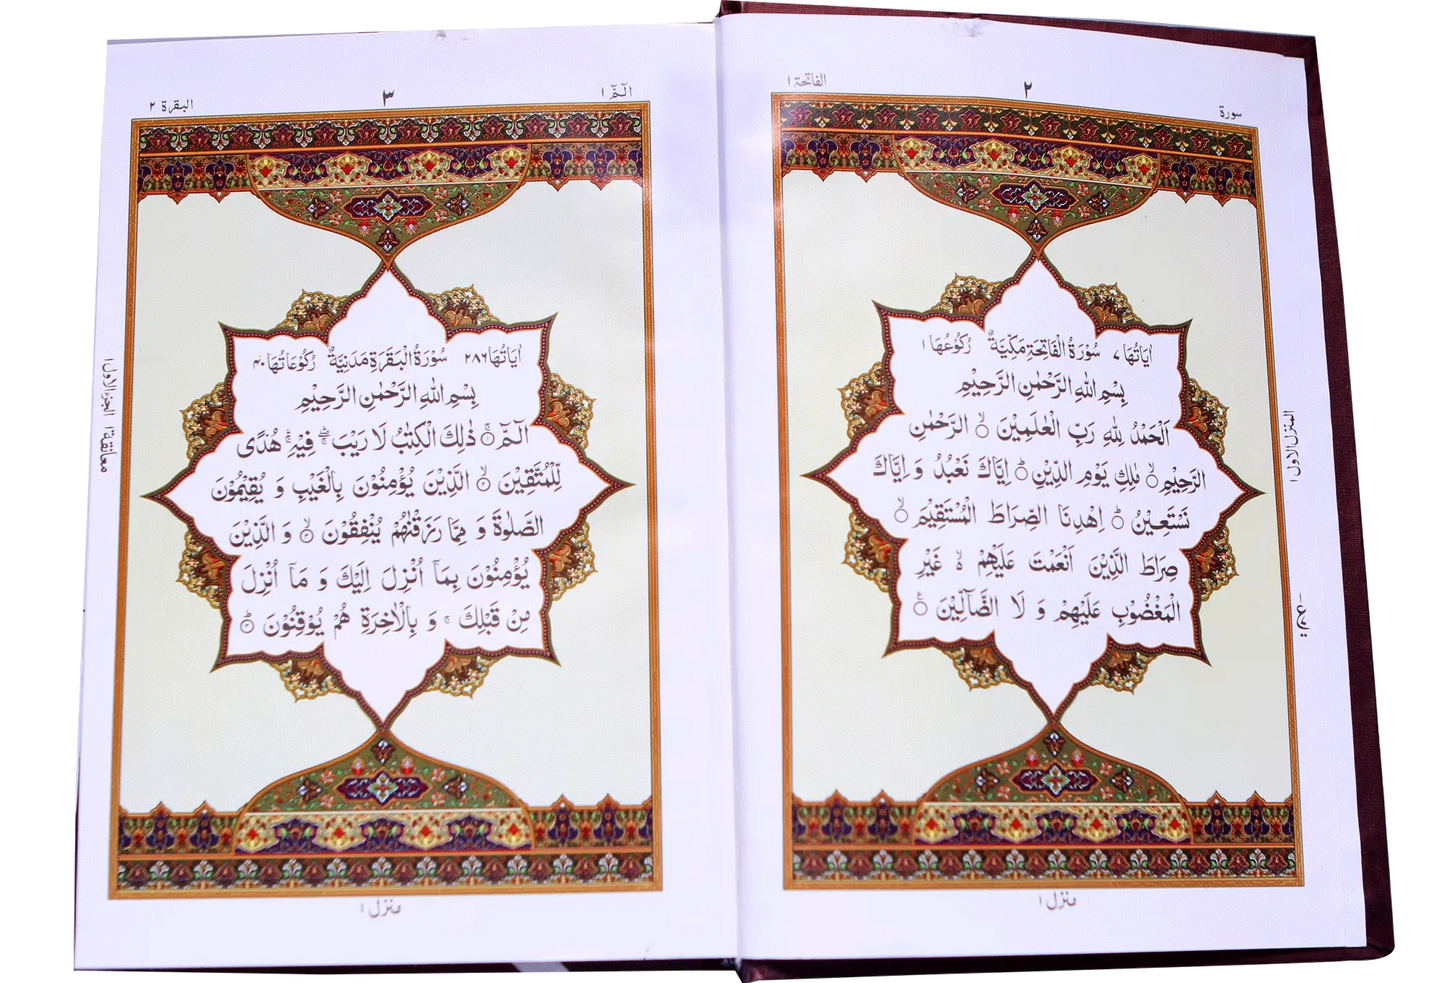 سورة
٢
الفاتحة ١
اٰيَاتُهَا ٧ سُوْرَةُ الْفَاتِحَةِ مَكِّيَّةٌ رُكُوْعُهَا ١
بِسْمِ اللّٰهِ الرَّحْمٰنِ الرَّحِيْمِ
اَلْحَمْدُ لِلّٰهِ رَبِّ الْعٰلَمِيْنَ ۙ الرَّحْمٰنِ
الرَّحِيْمِ ۙ مٰلِكِ يَوْمِ الدِّيْنِ ؕ اِيَّاكَ نَعْبُدُ وَ اِيَّاكَ
نَسْتَعِيْنُ ؕ اِهْدِنَا الصِّرَاطَ الْمُسْتَقِيْمَ ۙ
صِرَاطَ الَّذِيْنَ اَنْعَمْتَ عَلَيْهِمْ ۙ غَيْرِ
الْمَغْضُوْبِ عَلَيْهِمْ وَ لَا الضَّآلِّيْنَ
المنزل الاول ١
منزل ١
الٓمّٓ ١
٣
البقرة ٢
اٰيَاتُهَا ٢٨٦ سُوْرَةُ الْبَقَرَةِ مَدَنِيَّةٌ رُكُوْعَاتُهَا ٤٠
بِسْمِ اللّٰهِ الرَّحْمٰنِ الرَّحِيْمِ
الٓمّٓ ۚ ١ ذٰلِكَ الْكِتٰبُ لَا رَيْبَ ۛۖ فِيْهِ ۛۚ هُدًى
لِّلْمُتَّقِيْنَ ۙ ٢ الَّذِيْنَ يُؤْمِنُوْنَ بِالْغَيْبِ وَ يُقِيْمُوْنَ
الصَّلٰوةَ وَ مِمَّا رَزَقْنٰهُمْ يُنْفِقُوْنَ ۙ ٣ وَ الَّذِيْنَ
يُؤْمِنُوْنَ بِمَآ اُنْزِلَ اِلَيْكَ وَ مَآ اُنْزِلَ
مِنْ قَبْلِكَ ۚ وَ بِالْاٰخِرَةِ هُمْ يُوْقِنُوْنَ ؕ ٤
معانقة ١ الجزء الاول ١
منزل ١